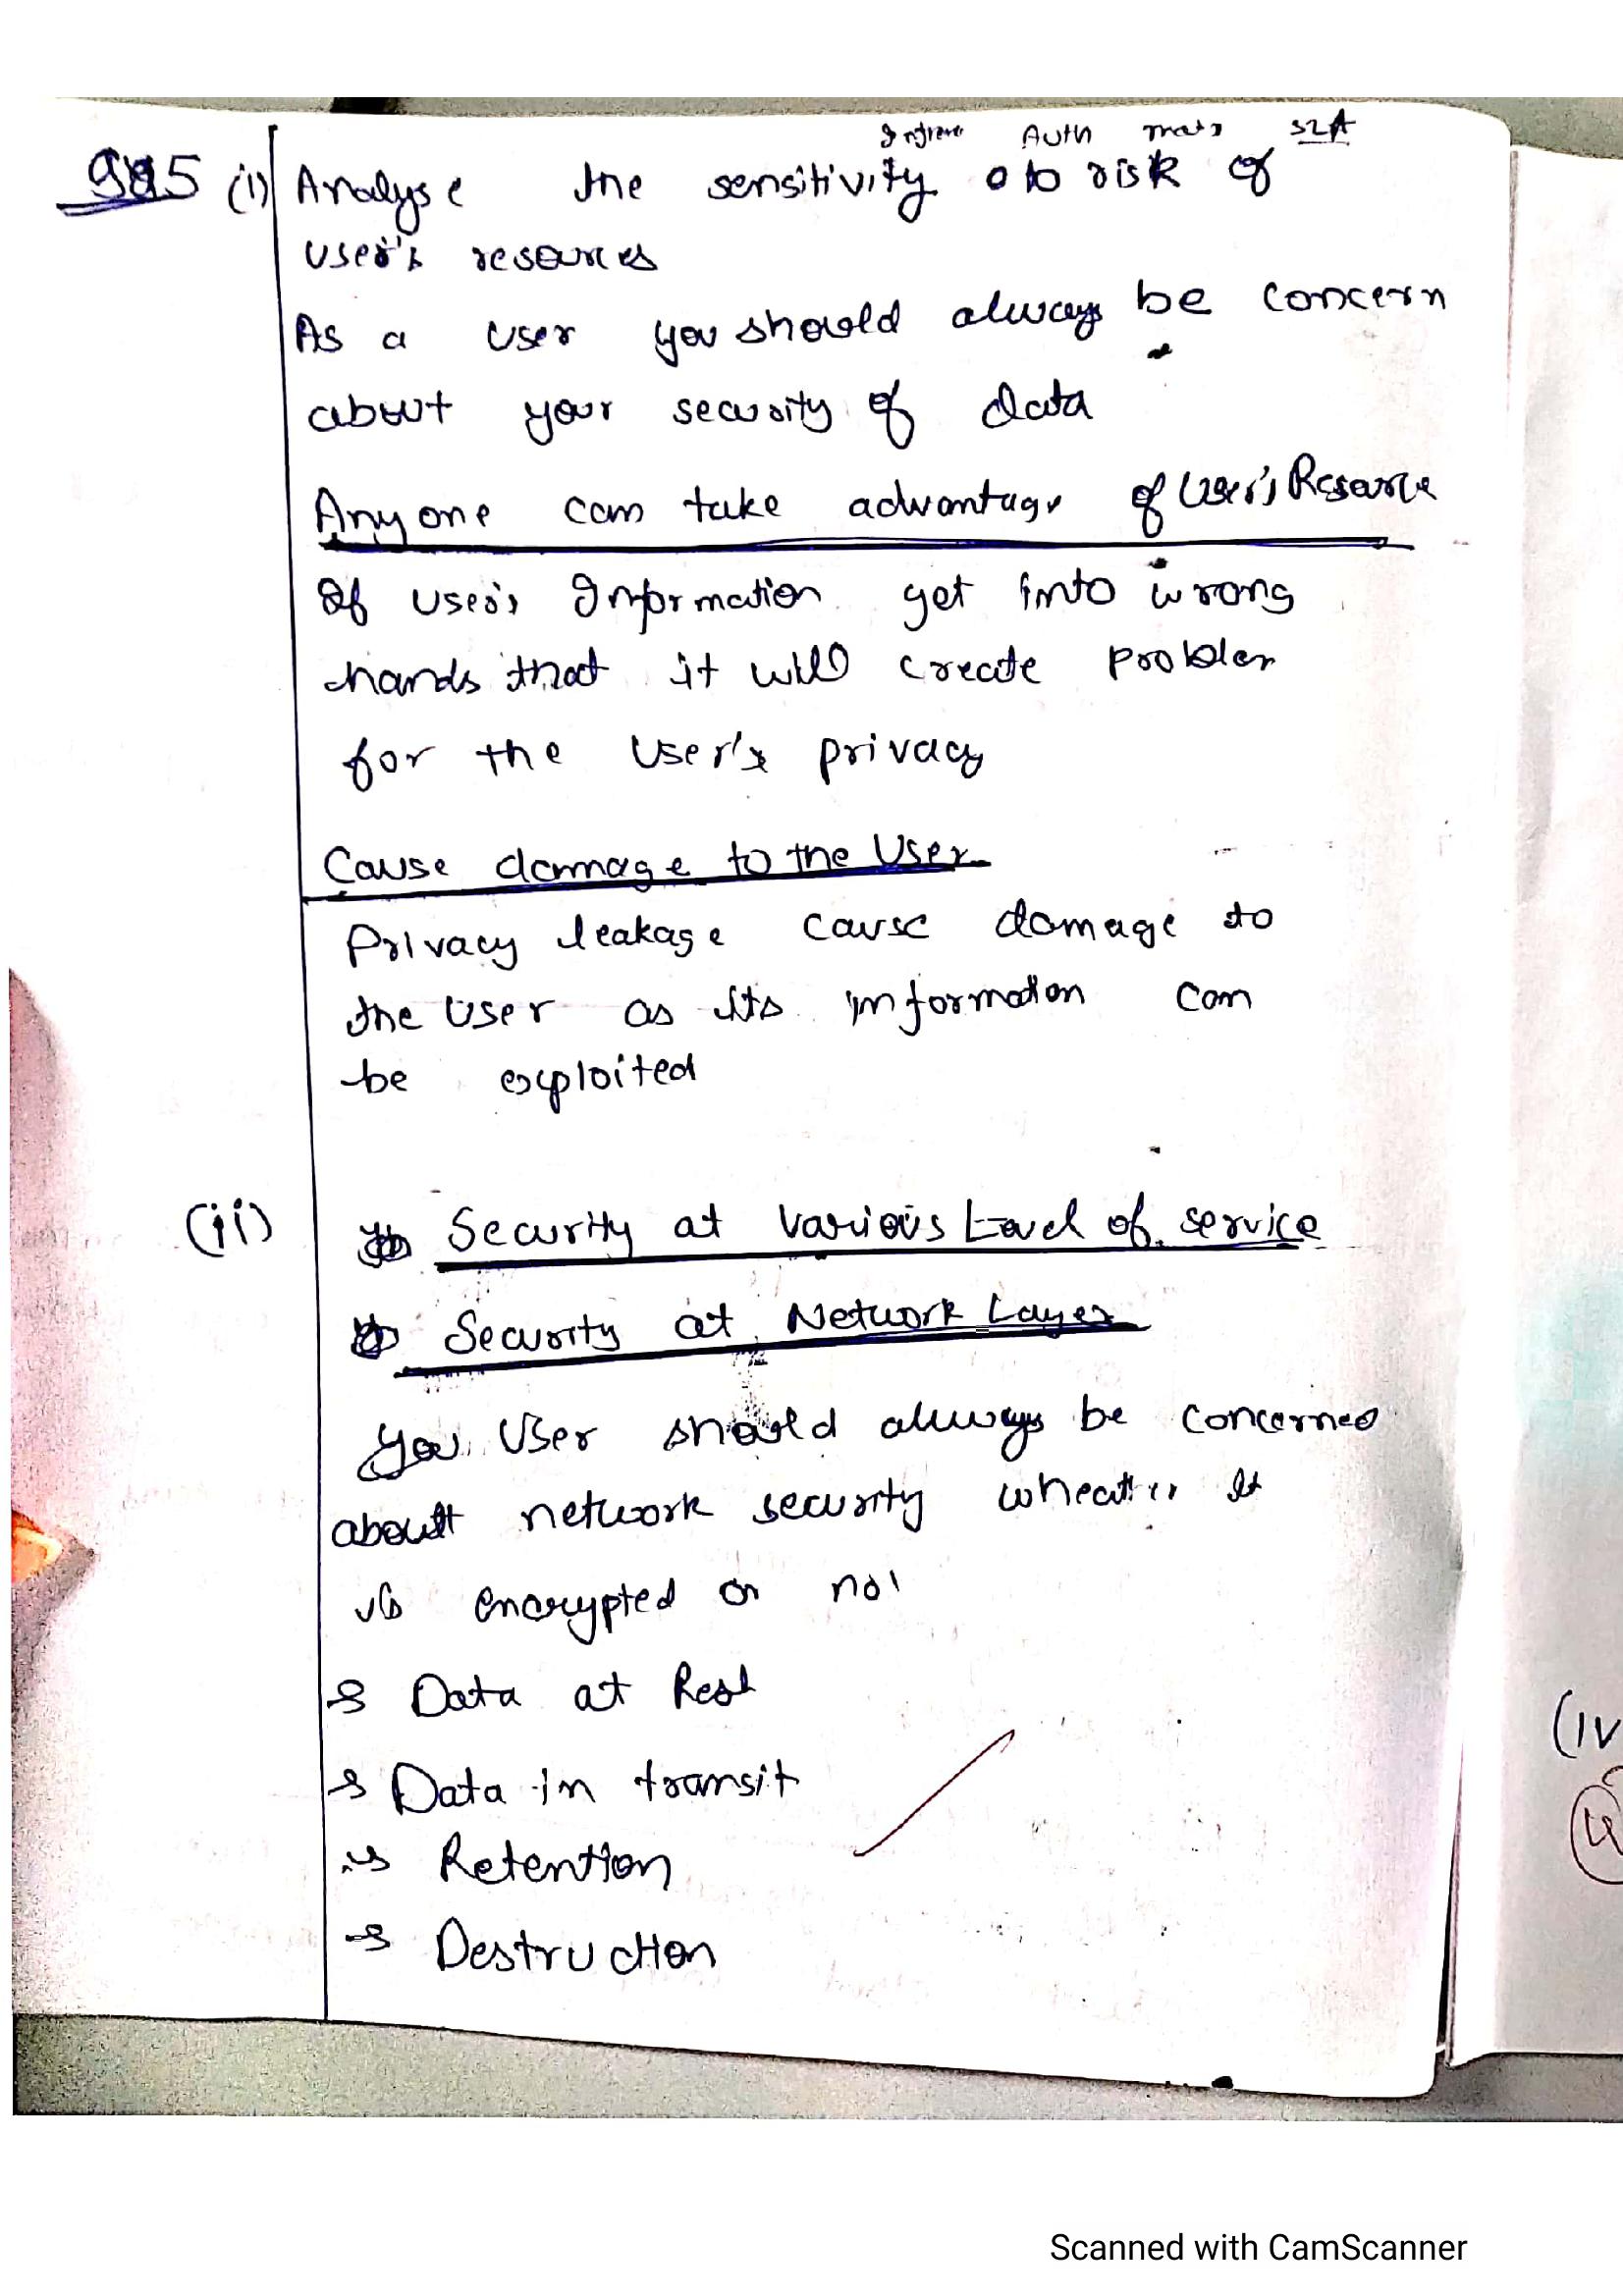 Auth SLA
5 (i) Analyse the sensitivity to risk of
User's resources
As a user you should always be concern
about your security of data
Anyone can take advantage of User's Resource
If User's Information get into wrong
hands that it will create problem
for the User's privacy
Cause damage to the User
Privacy leakage cause damage to
the User as its information can
be exploited
(ii) Security at various Level of service
Security at Network Layer
You User should always be concerned
about network security wheather it
is encrypted or not
→ Data at Rest
→ Data in transit
→ Retention
→ Destruction
(iv
Scanned with CamScanner